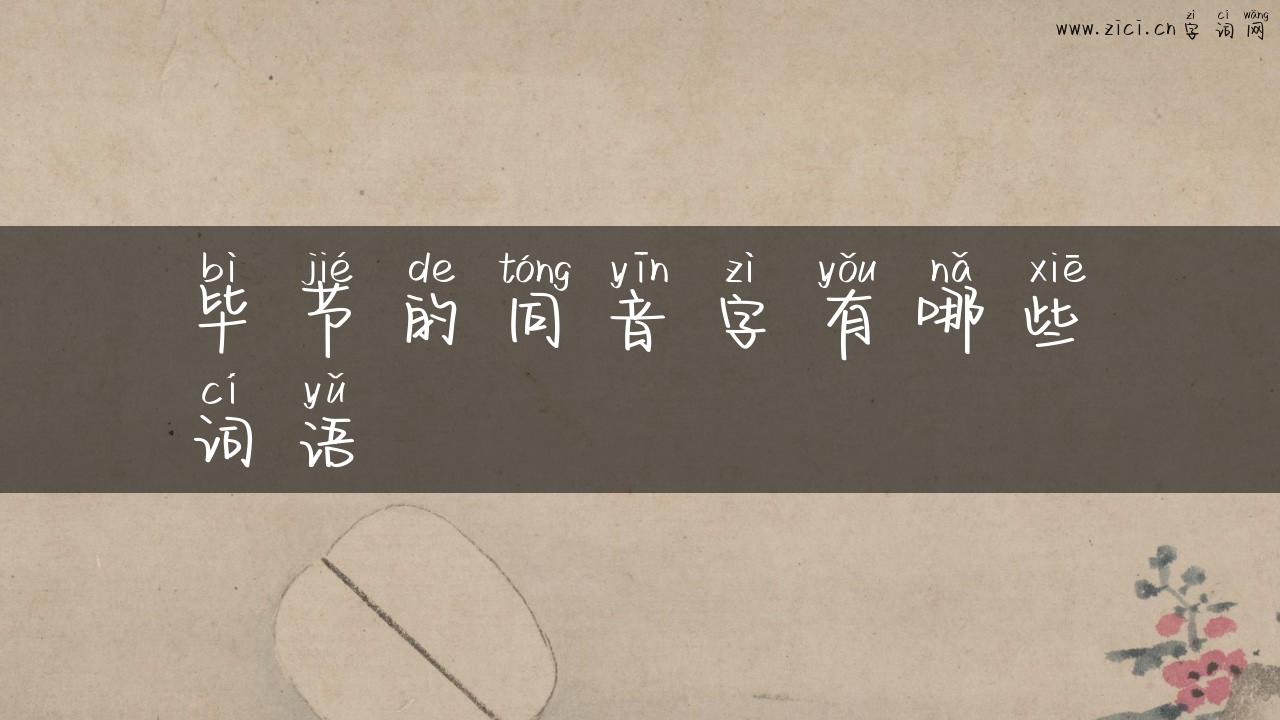 zì cí wǎng
www.zici.cn 字 词 网
bì jié de tóng yīn zì yǒu nǎ xiē
毕 节 的 同 音 字 有 哪 些
cí yǔ
词 语